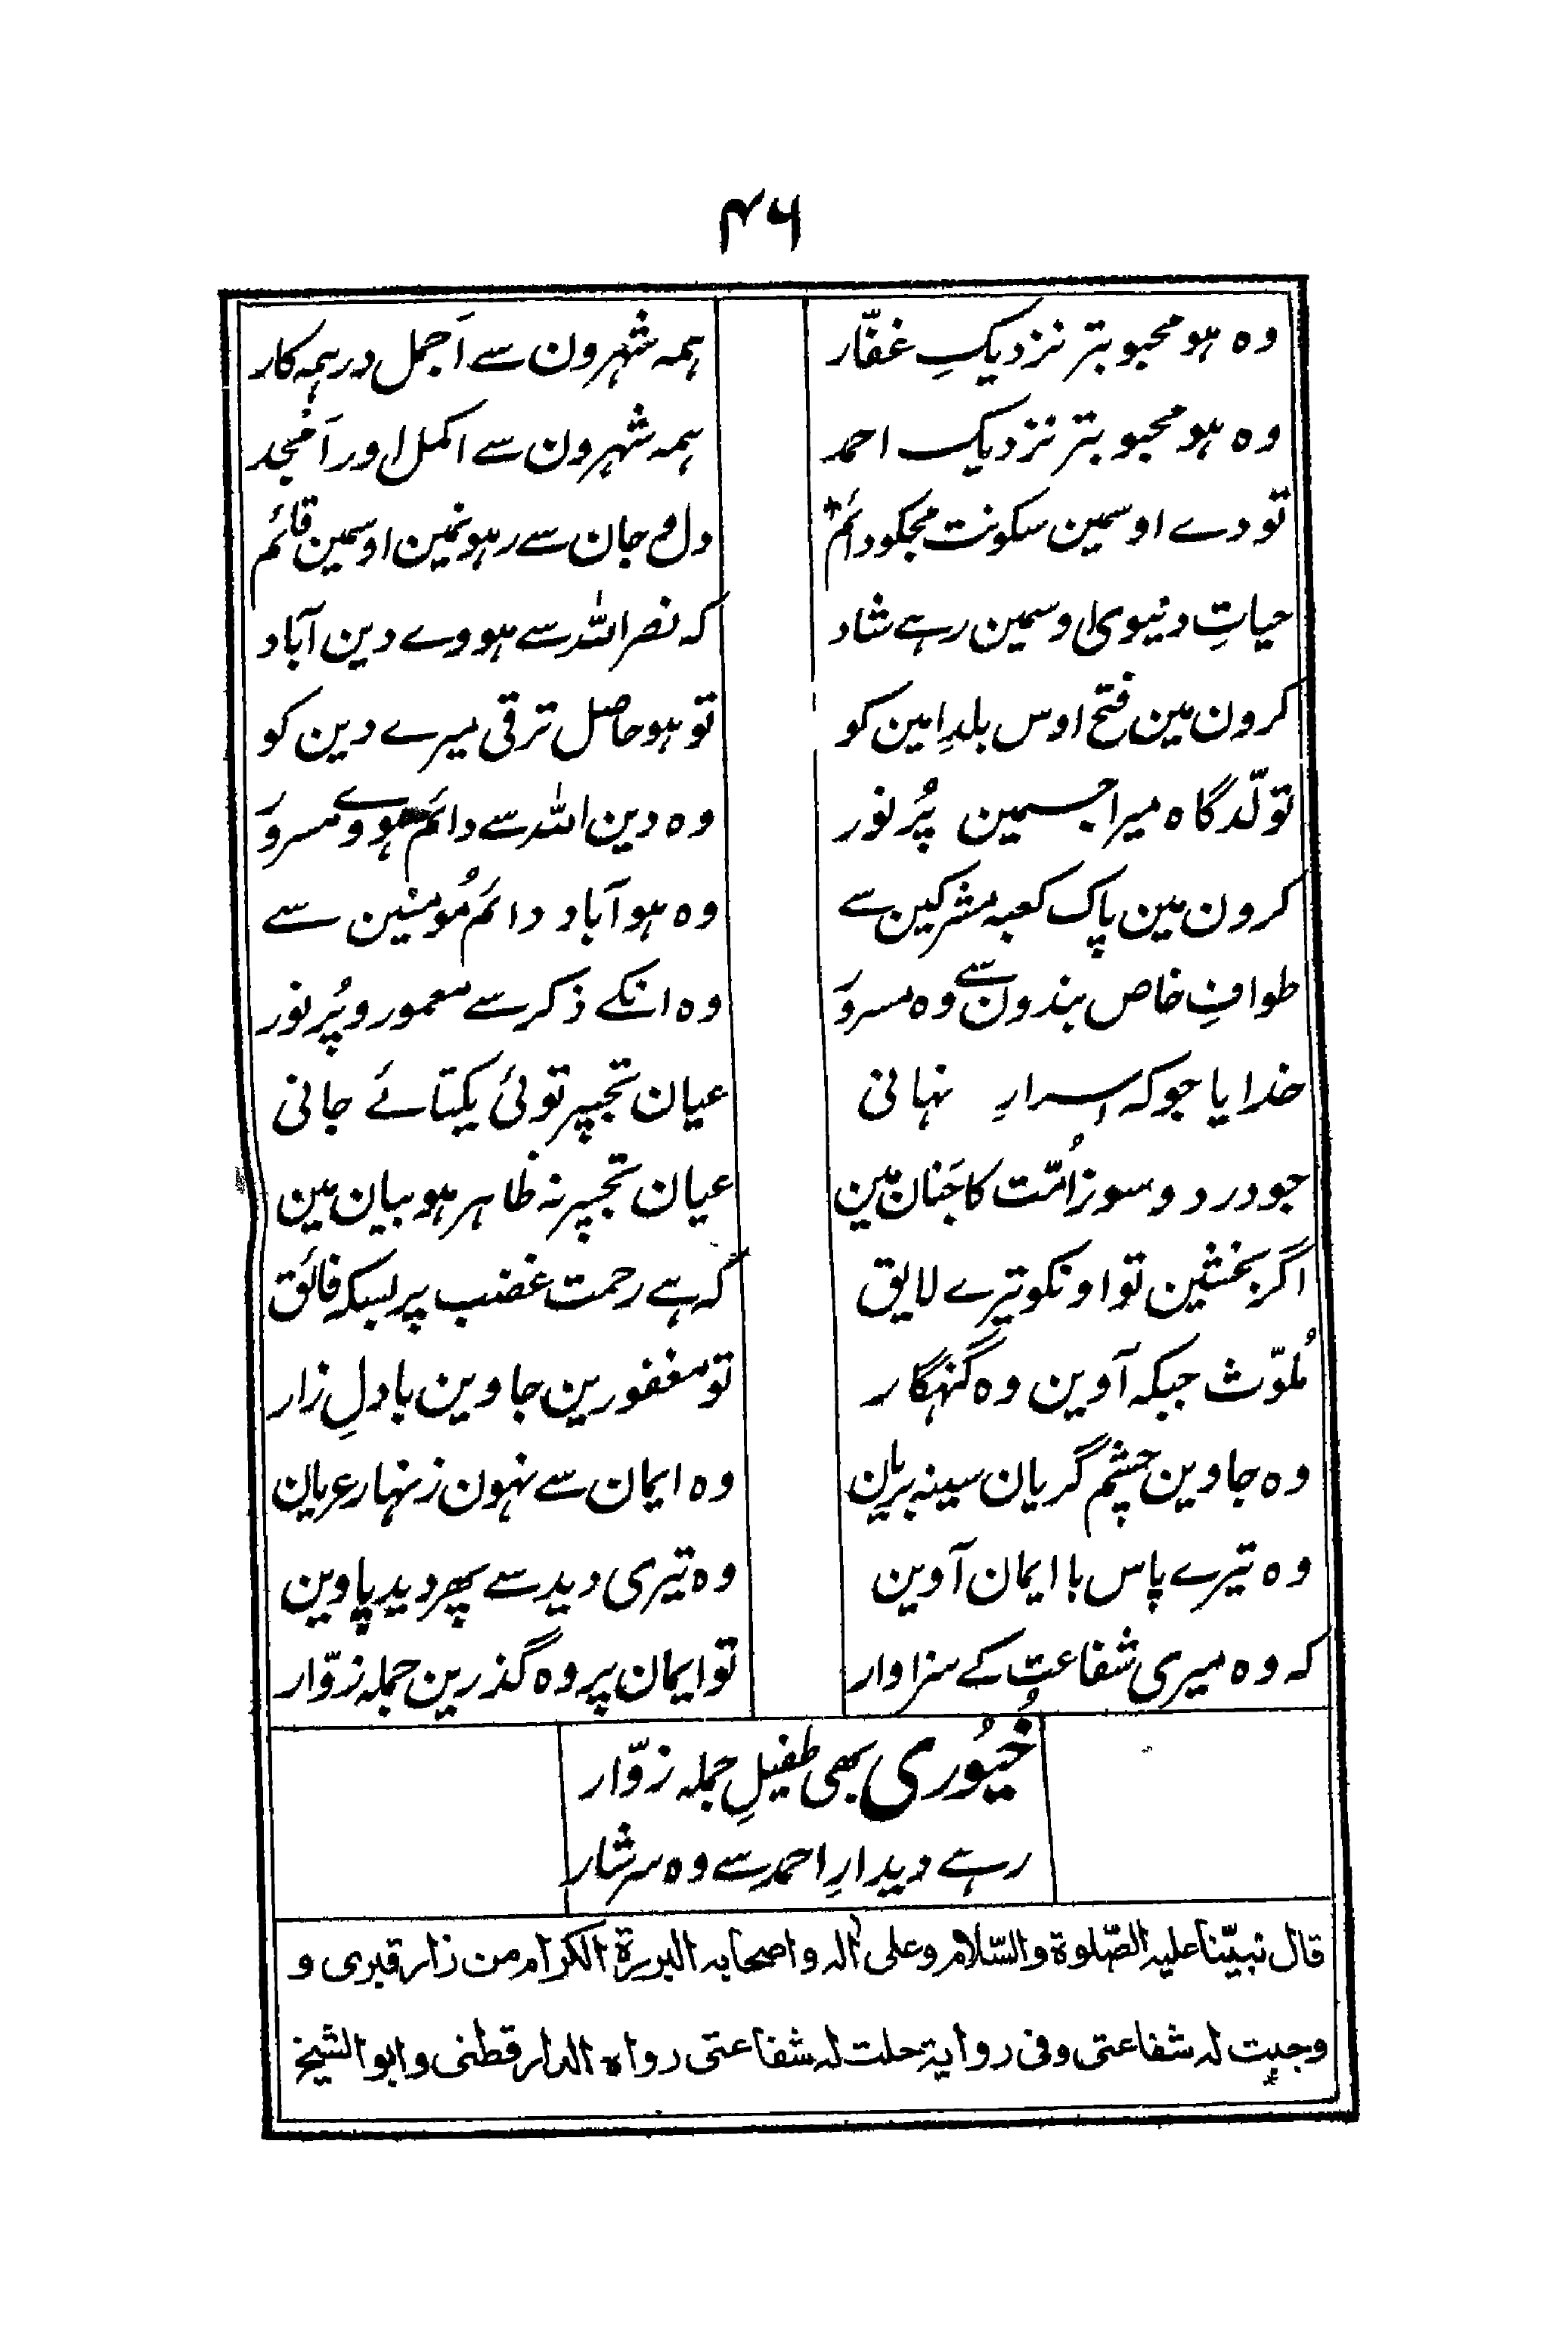 ۴۶
وہ ہو محبوبتر نزدیکِ غفّار ہمہ شہرون سے اَجمل در ہمہ کار
وہ ہو محبوبتر نزدیک احمد ہمہ شہرون سے اکمل اور اَمجد
تو دے اوسمین سکونت مجکو دائم دل و جان سے رہونمین اوسمین قائم
حیاتِ دنیوی اوسمین رہے شاد کہ نصر اللہ سے ہووے دین آباد
کرون مین فتح اوس بلدِ امین کو تو ہو حاصل ترقی میرے دین کو
تولّد گاہ میرا جسمین پُر نور وہ دین اللہ سے دائم ہووے مسرور
کرون مین پاک کعبہ مشرکین سے وہ ہو آباد دائم مُومنین سے
طوافِ خاص بندون سے وہ مسرور وہ انکے ذکر سے معمور و پُر نور
خدایا جو کہ اسرارِ نہانی عیان تجپر توئی یکتائے جانی
جو درد و سوز اُمّت کا جَنان مین عیان تجپر نہ ظاہر ہو بیان مین
اگر بخشین تو اونکو تیرے لایق کہ ہے رحمت غضب پر بسکہ فائق
مُلوّث جبکہ آوین وہ گنہگار تو مغفورین جاوین با دلِ زار
وہ جاوین چشم گریان سینہ بریان وہ ایمان سے نہون زنہار عریان
وہ تیرے پاس با ایمان آوین وہ تیری دید سے پھر دید پاوین
کہ وہ میری شفاعت کے سزاوار تو ایمان پر وہ گذرین جملہ زوّار
خُیُوری بھی طفیلِ جملہ زوّار
رہے دیدارِ احمد سے وہ سرشار
قال نبیّنا علیہ الصّلوة والسّلام و علی اٰلہ و اصحابہ البررة الکرام من زار قبری و
وجبت لہ شفاعتی و فی روایة حلت لہ شفاعتی رواہ الدار قطنی و ابو الشیخ